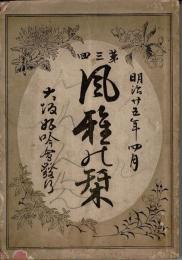 明治廿五年四月
第三四
風雅の栞
大阪好吟會發行